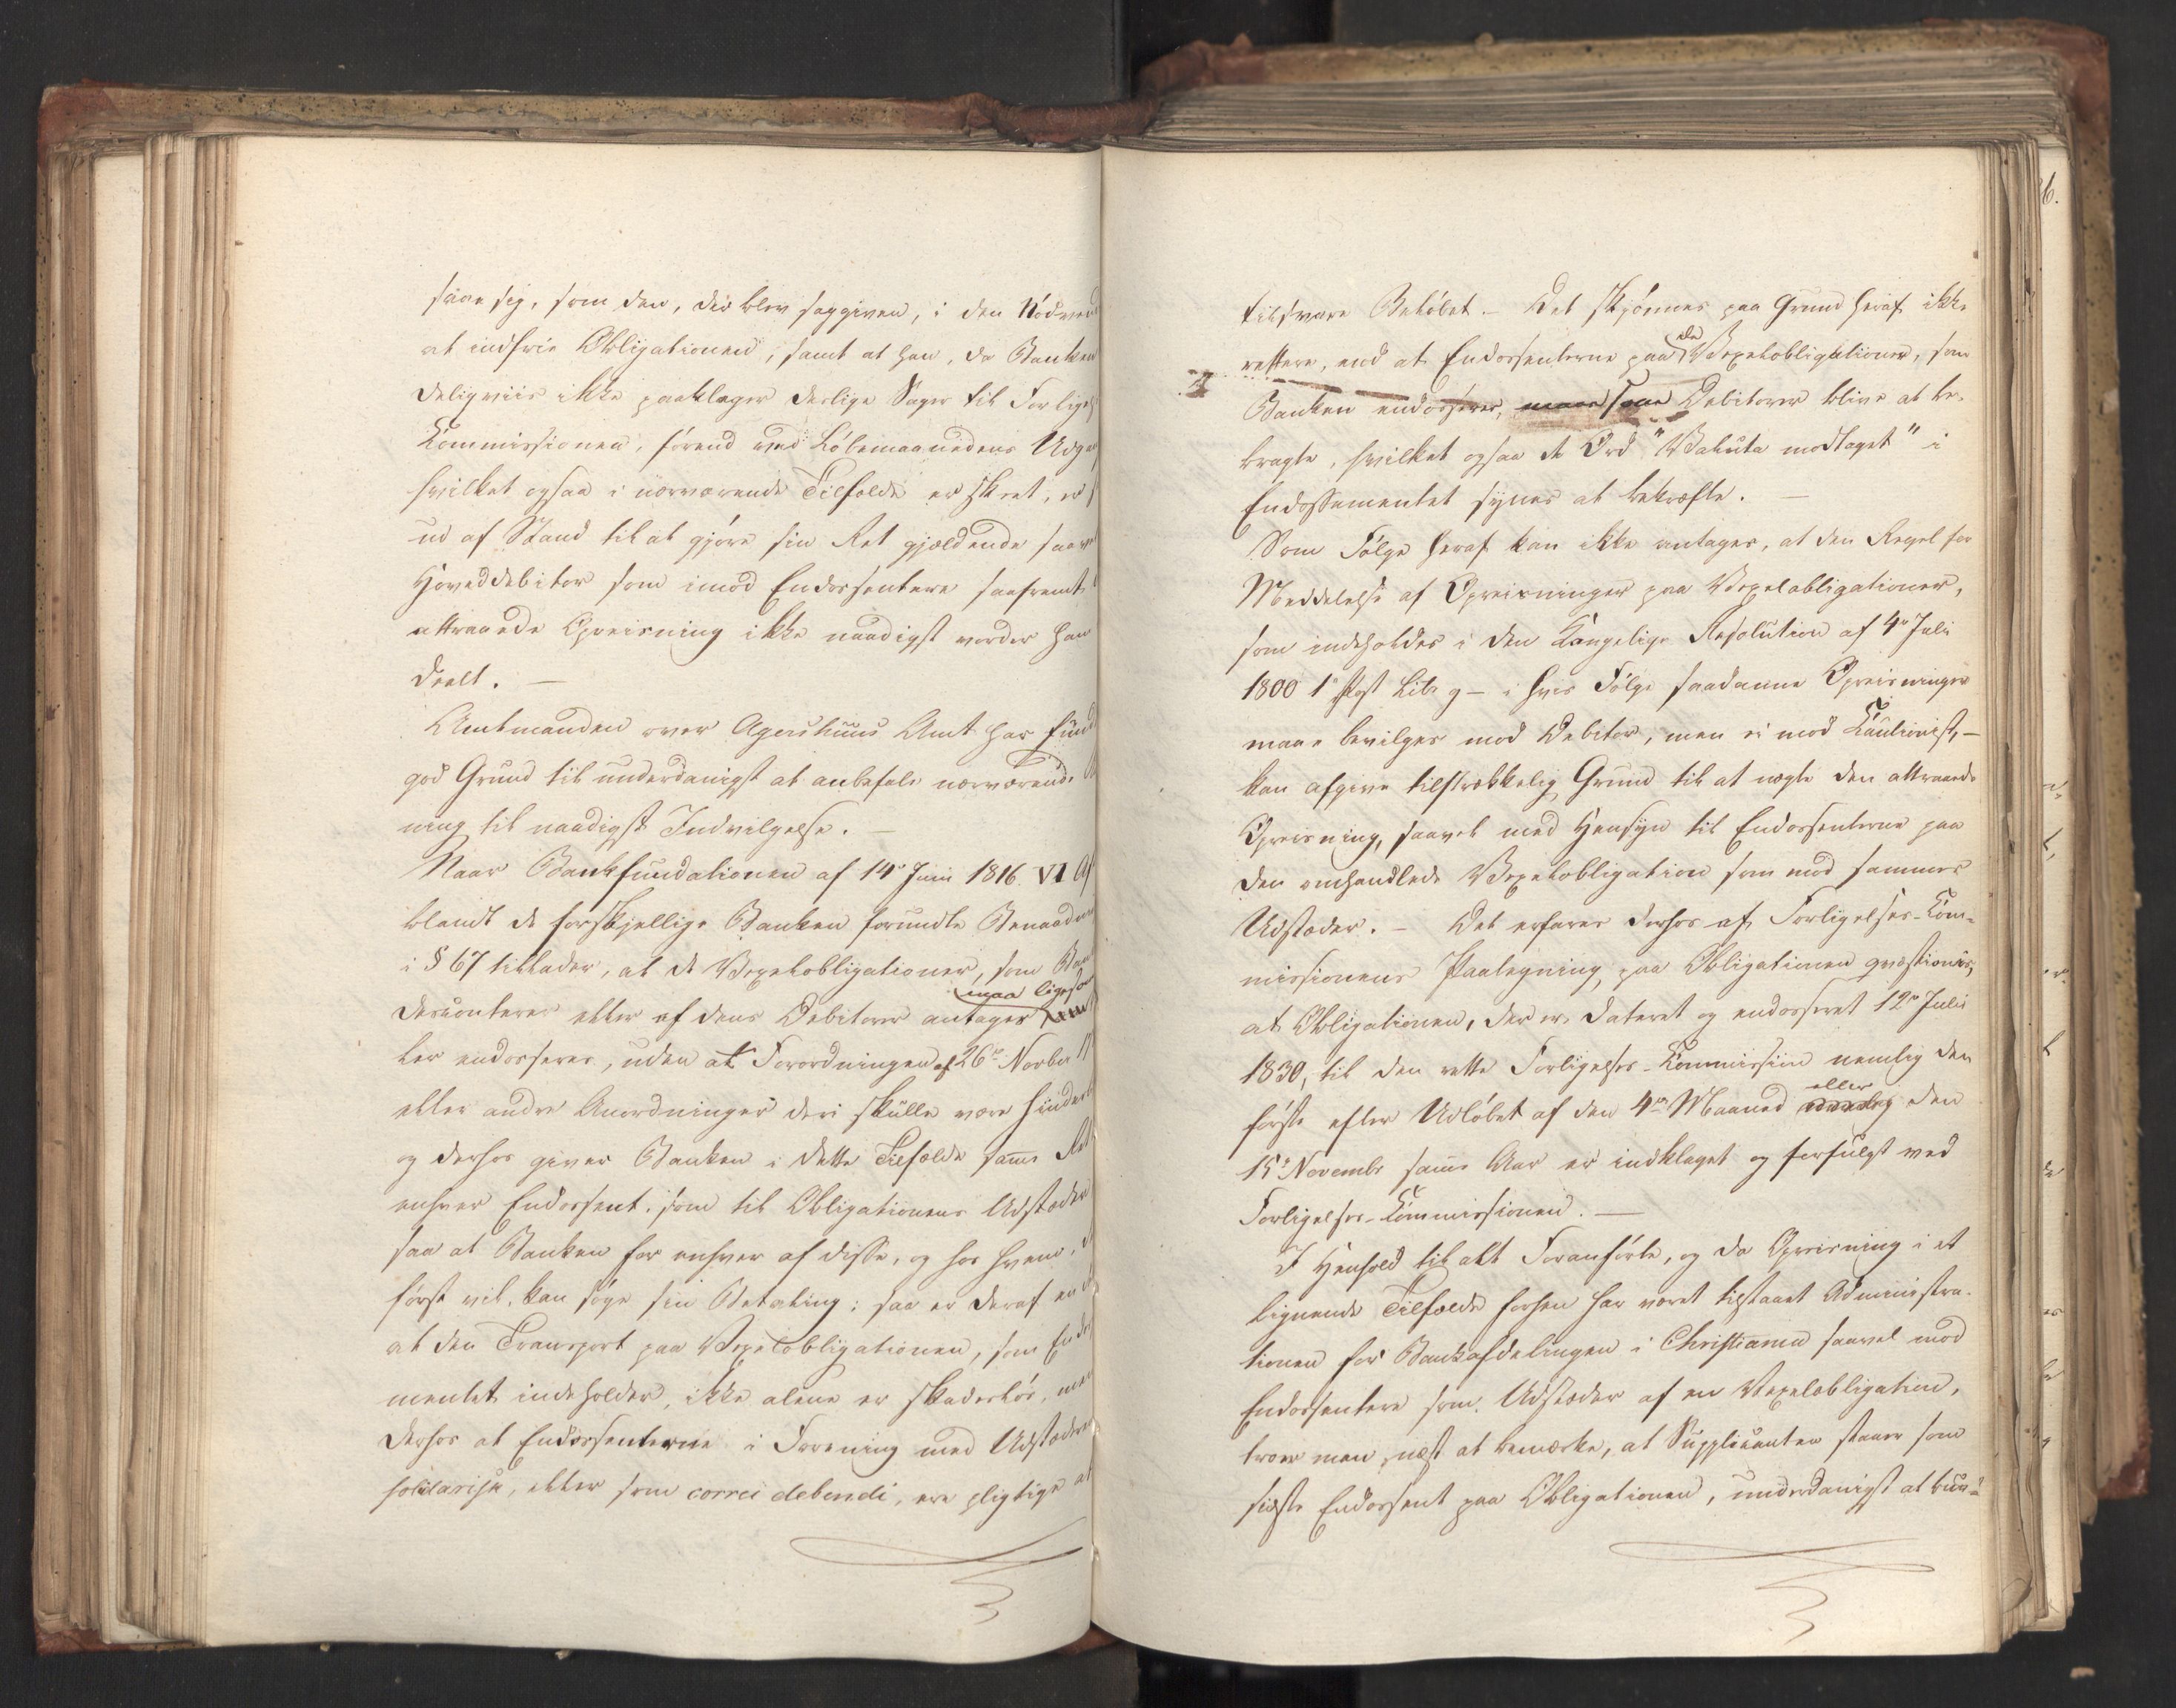 saae sig, som den, der blev saggiven, i den Nødvend
at indfrie Obligationen, samt at han, da Banken
deligviis ikke paaklager deslige Sager til Forligels
Kommissionen, førend ved Løbemaanedens Udga
hvilket ogsaa i nærværende Tilfælde er skeet, er
ud af Stand til at gjøre sin Ret gjældende saavel
Hoveddebitor som imod Endossentere saafremt
attraaede Opreisning ikke naadigst vorder ham
deelt. —
Amtmanden over Agershuus Amt har fund
god Grund til underdanigst at anbefale nærværende
ning til naadigst Indvilgelse. —
Naar Bankfundationen af 14de Juni 1816 VI Af
blandt de forskjellige Banken forundte Benaadn
i § 67 tillader, at de Vexelobligationer, som Ban
descontere eller af dens Debitorer antages maa ligesaa
ler endosseres, uden at Forordningen af 26de Novber 17
eller andre Anordninger deri skulle være hinder
og derhos giver Banken i dette Tilfælde samme Ret
enhver Endossent, som til Obligationens Udstæder
saa at Banken har enhver af disse, og hos hvem, d
først vil, kan søge sin Betaling; saa er deraf en
at den Transport paa Vexelobligationen, som Endos
mentet indeholder, ikke alene er skadesløs, men
derhos at Endossenterne i Forening med Udstæderen
solidarisk, eller som correi debendi, ere pligtige at
tilsvare Beløbet. — Det skjønnes paa Grund heraf ikke
rettere, end at Endossenterne paa de Vexelobligationer, som
Banken endosserer, maae som Debitorer blive at be-
tragte, hvilket ogsaa de Ord "Valuta modtaget" i
Endossementet synes at bekræfte. —
Som Følge heraf kan ikke antages, at den Regel for
Meddelelse af Opreisninger paa Vexelobligationer,
som indeholdes i den Kongelige Resolution af 4de Juli
1800 1ste Post Litr g — i hvis Følge saadanne Opreisninger
maae bevilges mod Debitor, men ei mod Kautionist, —
kan afgive tilstrækkelig Grund til at nægte den attraaede
Opreisning, saavel med Hensyn til Endossenterne paa
den omhandlede Vexelobligation som mod sammes
Udstæder. — Det erfares derhos af Forligelses-Kom-
missionens Paategning paa Obligationen qvæstionis,
at Obligationen, der er dateret og endosseret 12te Juli
1830, til den rette Forligelses-Kommission nemlig den
første efter Udløbet af den 4de Maaned eller den
15de Novembr samme Aar er indklaget og forfulgt ved
Forligelses-Kommissionen. —
I Henhold til alt Foranførte, og da Opreisning i et
lignende Tilfælde forhen har været tilstaaet Administra-
tionen for Bankafdelingen i Christiania saavel mod
Endossentere som Udstæder af en Vexelobligation,
troer man, næst at bemærke, at Supplicanten staaer som
sidste Endossent paa Obligationen, underdanigst at burde